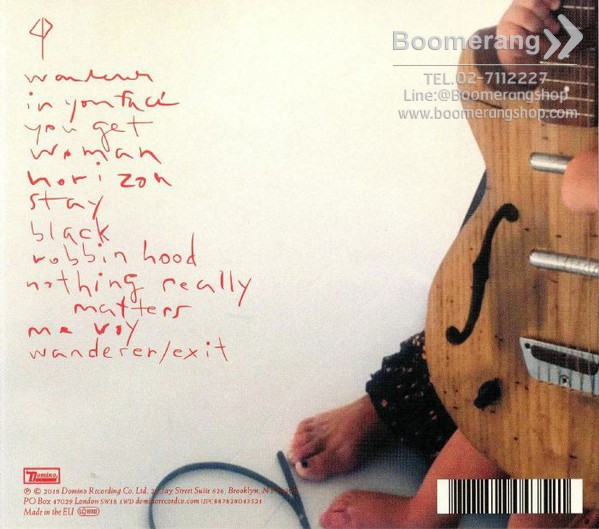 wanderer
in your face
you get
woman
horizon
stay
black
robbin hood
nothing really
matters
me voy
wanderer/exit
Boomerang
TEL.02-7112227
Line:@Boomerangshop
www.boomerangshop.com
Domino
℗ © 2018 Domino Recording Co. Ltd. 20 Jay Street Suite 626, Brooklyn, NY
PO Box 47029 London SW18 1WD dominorecordco.com UPC 887828043521
Made in the EU